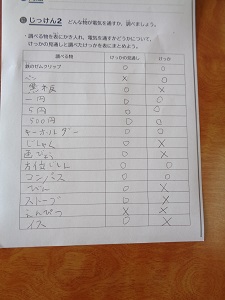 じっけん2 どんな物が電気を通すか、調べましょう。
・調べる物を表にかき入れ、電気を通すかどうかについて、
けっかの見通しと調べたけっかを表にまとめよう。
調べる物 けっかの見通し けっか
鉄のゼムクリップ ○ ○
ペン × ○
黒板 ○ ×
一円 ○ ○
5円 ○ ○
500円 ○ ○
キーホルダー ○ ○
じしゃく ○ ×
画びょう ○ ×
方位じしん ○ ○
コンパス ○ ○
びん ○ ×
ストーブ ○ ×
えんぴつ × ×
イス ○ ×